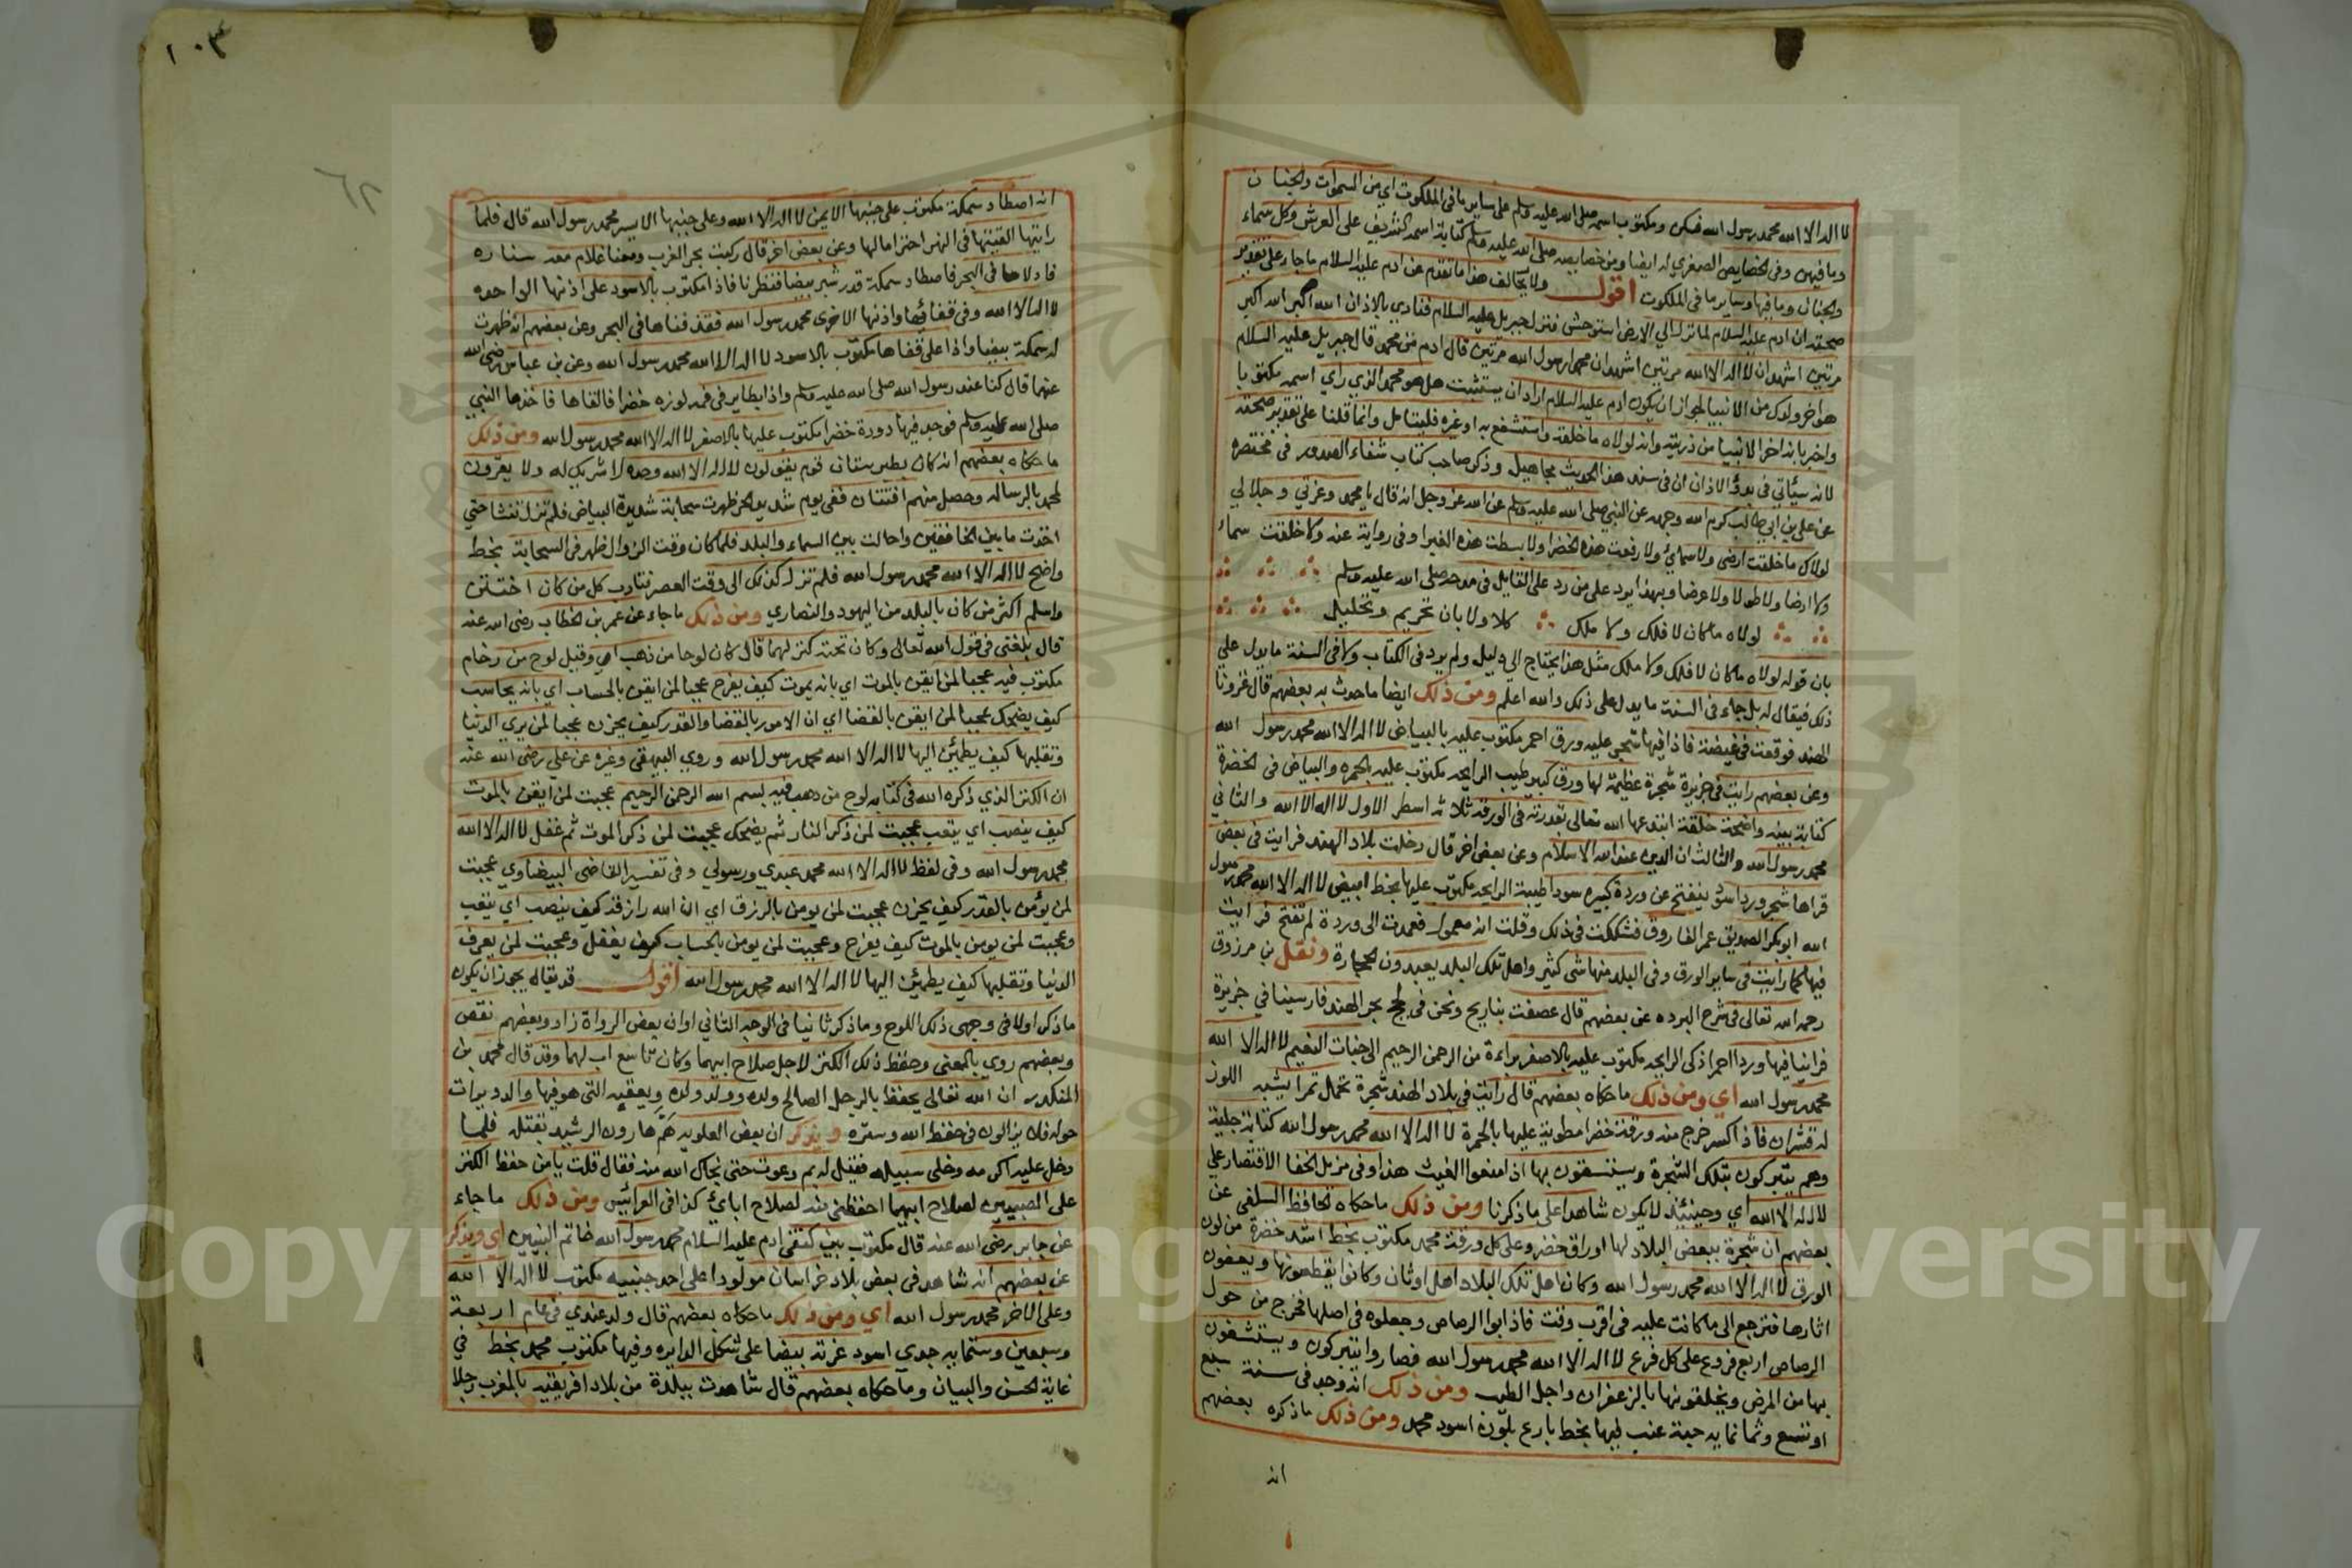 لا اله الا الله محمد رسول الله فسكن ومكتوب اسمه صلى الله عليه وسلم على ساير ما في الملكوت اي من السموات والجنان
وما فيهن وفي الخصايص الصغري له ايضا ومن خصايصه صلى الله عليه وسلم كتابة اسمه الشريف على العرش وكل سماء
والجنان وما فيها وساير ما في الملكوت اقول ولا يخالف هذا ما تقدم عن ادم عليه السلام ما جاء على تقدير
صحته ان ادم عليه السلام لما نزل الي الارض استوحش فنزل جبريل عليه السلام فنادي بالاذان الله اكبر الله اكبر
مرتين اشهد ان لا اله الا الله مرتين اشهد ان محمدا رسول الله مرتين قال ادم من محمد قال جبريل عليه السلام
هو اخر ولدك من الانبيا لجواز ان يكون ادم عليه السلام اراد ان يستثبت هل هو محمد الذي راي اسمه مكتوبا
واخبر بانه اخر الانبيا من ذريته وانه لولاه ما خلقه واستشفع به او غيره فليتامل وانما قلنا على تقدير صحته
لانه سيئاتي في بدؤ الاذان ان في سند هذا الحديث مجاهيل وذكر صاحب كتاب شفاء الصدور في مختصره
عن علي بن ابي طالب كرم الله وجهه عن النبي صلى الله عليه وسلم عن الله عز وجل انه قال يا محمد وعزتي وجلالي
لولاك ما خلقت ارضي ولا سمائي ولا رفعت هذه الخضرا ولا بسطت هذه الغبرا وفي رواية عنه ولا خلقت سماء
ولا ارضا ولا طولا ولا عرضا وبهذا يرد على من رد على القايل في مدحه صلى الله عليه وسلم
لولاه ما كان لا فلك ولا ملك كلا ولا بان تحريم وتحليل
بان قوله لولاه ما كان لا فلك ولا ملك مثل هذا يحتاج الي دليل ولم يرد في الكتاب ولا في السنة ما يدل على
ذلك فيقال له بل جاء في السنة ما يدل على ذلك والله اعلم ومن ذلك ايضا ما حدث به بعضهم قال غزونا
الهند فوقعت في غيضة فاذا فيها شجر عليه ورق احمر مكتوب عليه بالبياض لا اله الا الله محمد رسول الله
وعن بعضهم رايت في جزيرة شجرة عظيمة لها ورق كبير طيب الرايحه مكتوب عليه بالحمره والبياض في الخضرة
كتابة بينه واضحة خلقة ابتدعها الله تعالى بقدرته في الورقة ثلاثة اسطر الاول لا اله الا الله والثاني
محمد رسول الله والثالث ان الدين عند الله الاسلام وعن بعض اخر قال دخلت بلاد الهند فرايت في بعض
قراها شجر ورد اسود ينفتح عن وردة كبيره سودا طيبة الرايحه مكتوب عليها بخط ابيض لا اله الا الله محمد رسول
الله ابو بكر الصديق عمر الفاروق فشككت في ذلك وقلت انه معمول فعمدت الى وردة لم تفتح فرايت
فيها كما رايت في ساير الورق وفي البلد منها شي كثير واهل تلك البلد يعبدون الحجارة ونقل بن مرزوق
رحمه الله تعالى في شرح البرده عن بعضهم قال عصفت بنا ريح ونحن في لجج بحر الهند فارسينا في جزيرة
فراينا فيها وردا احمر ذكي الرايحه مكتوب عليه بالاصفر براءة من الرحمن الرحيم الى جنات النعيم لا اله الا الله
محمد رسول الله اي ومن ذلك ما حكاه بعضهم قال رايت في بلاد الهند شجرة تحمل ثمرا يشبه اللوز
له قشران فاذا كسر خرج منه ورقة خضرا مطوية عليها بالحمرة لا اله الا الله محمد رسول الله كتابة جلية
وهم يتبركون بتلك الشجرة ويستسقون بها اذا منعوا الغيث هذا وفي مزيل الخفا الاقتصار على
لا اله الا الله اي وحينئذ لا يكون شاهدا على ما ذكرنا ومن ذلك ما حكاه الحافظ السلفي عن
بعضهم ان شجرة ببعض البلاد لها اوراق خضر وعلى كل ورقة محمد مكتوب بخط اشد خضرة من لون
الورق لا اله الا الله محمد رسول الله وكان اهل تلك البلاد اهل اوثان وكانوا يقطعونها ويعفون
اثارها فترجع الى ما كانت عليه في اقرب وقت فاذابوا الرصاص وجعلوه في اصلها فخرج من حول
الرصاص اربع فروع على كل فرع لا اله الا الله محمد رسول الله فصاروا يتبركون ويستشفون
بها من المرض ويخلقونها بالزعفران واجل الطيب ومن ذلك انه وجد في سنة سبع
او تسع وثمانمايه حبة عنب فيها بخط بارع بلون اسود محمد ومن ذلك ما ذكره بعضهم
انه
١٠٣
٦٢
انه اصطاد سمكة مكتوب على جنبها الايمن لا اله الا الله وعلى جنبها الايسر محمد رسول الله قال فلما
رايتها القيتها في النهر احتراما لها وعن بعض اخر قال ركبت بحر الغرب ومعنا غلام معه سناره
فادلاها في البحر فاصطاد سمكة قدر شبر بيضا فنظرنا فاذا مكتوب بالاسود على اذنها الواحده
لا اله الا الله وفي قفائها واذنها الاخرى محمد رسول الله فقذفناها في البحر وعن بعضهم انه ظهرت
له سمكة بيضا واذا على قفاها مكتوب بالاسود لا اله الا الله محمد رسول الله وعن بن عباس رضي الله
عنهما قال كنا عند رسول الله صلى الله عليه وسلم واذا بطاير في فمه لوزه خضرا فالقاها فاخذها النبي
صلى الله عليه وسلم فوجد فيها دودة خضرا مكتوب عليها بالاصفر لا اله الا الله محمد رسول الله ومن ذلك
ما حكاه بعضهم انه كان بطبرستان قوم يقولون لا اله الا الله وحده لا شريك له ولا يقرون
لمحمد بالرساله وحصل منهم افتتان ففي يوم شديد الحر ظهرت سحابة شديدة البياض فلم تزل تنشا حتي
اخذت ما بين الخافقين واحالت بين السماء والبلد فلما كان وقت الزوال ظهر في السحابة بخط
واضح لا اله الا الله محمد رسول الله فلم تزل كذلك الى وقت العصر فتاب كل من كان افتتن
واسلم اكثر من كان بالبلد من اليهود والنصاري ومن ذلك ما جاء عن عمر بن الخطاب رضي الله عنه
قال بلغني في قول الله تعالى وكان تحته كنز لهما قال كان لوحا من ذهب اي وقيل لوح من رخام
مكتوب فيه عجبا لمن ايقن بالموت اي بانه يموت كيف يفرح عجبا لمن ايقن بالحساب اي بانه يحاسب
كيف يضحك عجبا لمن ايقن بالقضا اي ان الامور بالقضا والقدر كيف يحزن عجبا لمن يري الدنيا
وتقلبها كيف يطمئن اليها لا اله الا الله محمد رسول الله وروي البيهقي وغيره عن علي رضي الله عنه
ان الكنز الذي ذكره الله في كتابه لوح من ذهب فيه بسم الله الرحمن الرحيم عجبت لمن ايقن بالموت
كيف ينصب اي يتعب عجبت لمن ذكر النار ثم يضحك عجبت لمن ذكر الموت ثم غفل لا اله الا الله
محمد رسول الله وفي لفظ لا اله الا الله محمد عبدي ورسولي وفي تفسير القاضي البيضاوي عجبت
لمن يؤمن بالقدر كيف يحزن عجبت لمن يومن بالرزق اي ان الله رازقه كيف ينصب اي يتعب
وعجبت لمن يومن بالموت كيف يفرح وعجبت لمن يومن بالحساب كيف يغفل وعجبت لمن يعرف
الدنيا وتقلبها كيف يطمئن اليها لا اله الا الله محمد رسول الله اقول قد يقال يجوز ان يكون
ما ذكر اولا في وجهى ذلك اللوح وما ذكر ثانيا في الوجه الثاني او ان بعض الرواة زاد وبعضهم نقص
وبعضهم روي بالمعنى وحفظ ذلك الكنز لاجل صلاح ابيهما وكان تاسع اب لهما وقد قال محمد بن
المنكدر ان الله تعالى يحفظ بالرجل الصالح ولده وولد ولده وبقعته التي هو فيها والدويرات
حوله فلا يزالون في حفظ الله وستره ويذكر ان بعض العلويه هم هارون الرشيد بقتله فلما
دخل عليه اكرمه وخلى سبيله فقيل له بم دعوت حتى نجاك الله منه فقال قلت يا من حفظ الكنز
على الصبيين لصلاح ابيهما احفظني منه لصلاح ابائي كذا في العرائس ومن ذلك ما جاء
عن جابر رضي الله عنه قال مكتوب بين كتفي ادم عليه السلام محمد رسول الله خاتم النبيين اي ويذكر
عن بعضهم انه شاهد في بعض بلاد خراسان مولودا على احد جنبيه مكتوب لا اله الا الله
وعلى الاخر محمد رسول الله اي ومن ذلك ما حكاه بعضهم قال ولد عندي في عام اربعة
وسبعين وستمايه جدي اسود غرته بيضا على شكل الدايره وفيها مكتوب محمد بخط في
غاية الحسن والبيان وما حكاه بعضهم قال شاهدت ببلدة من بلاد افريقيه بالمغرب رجلا